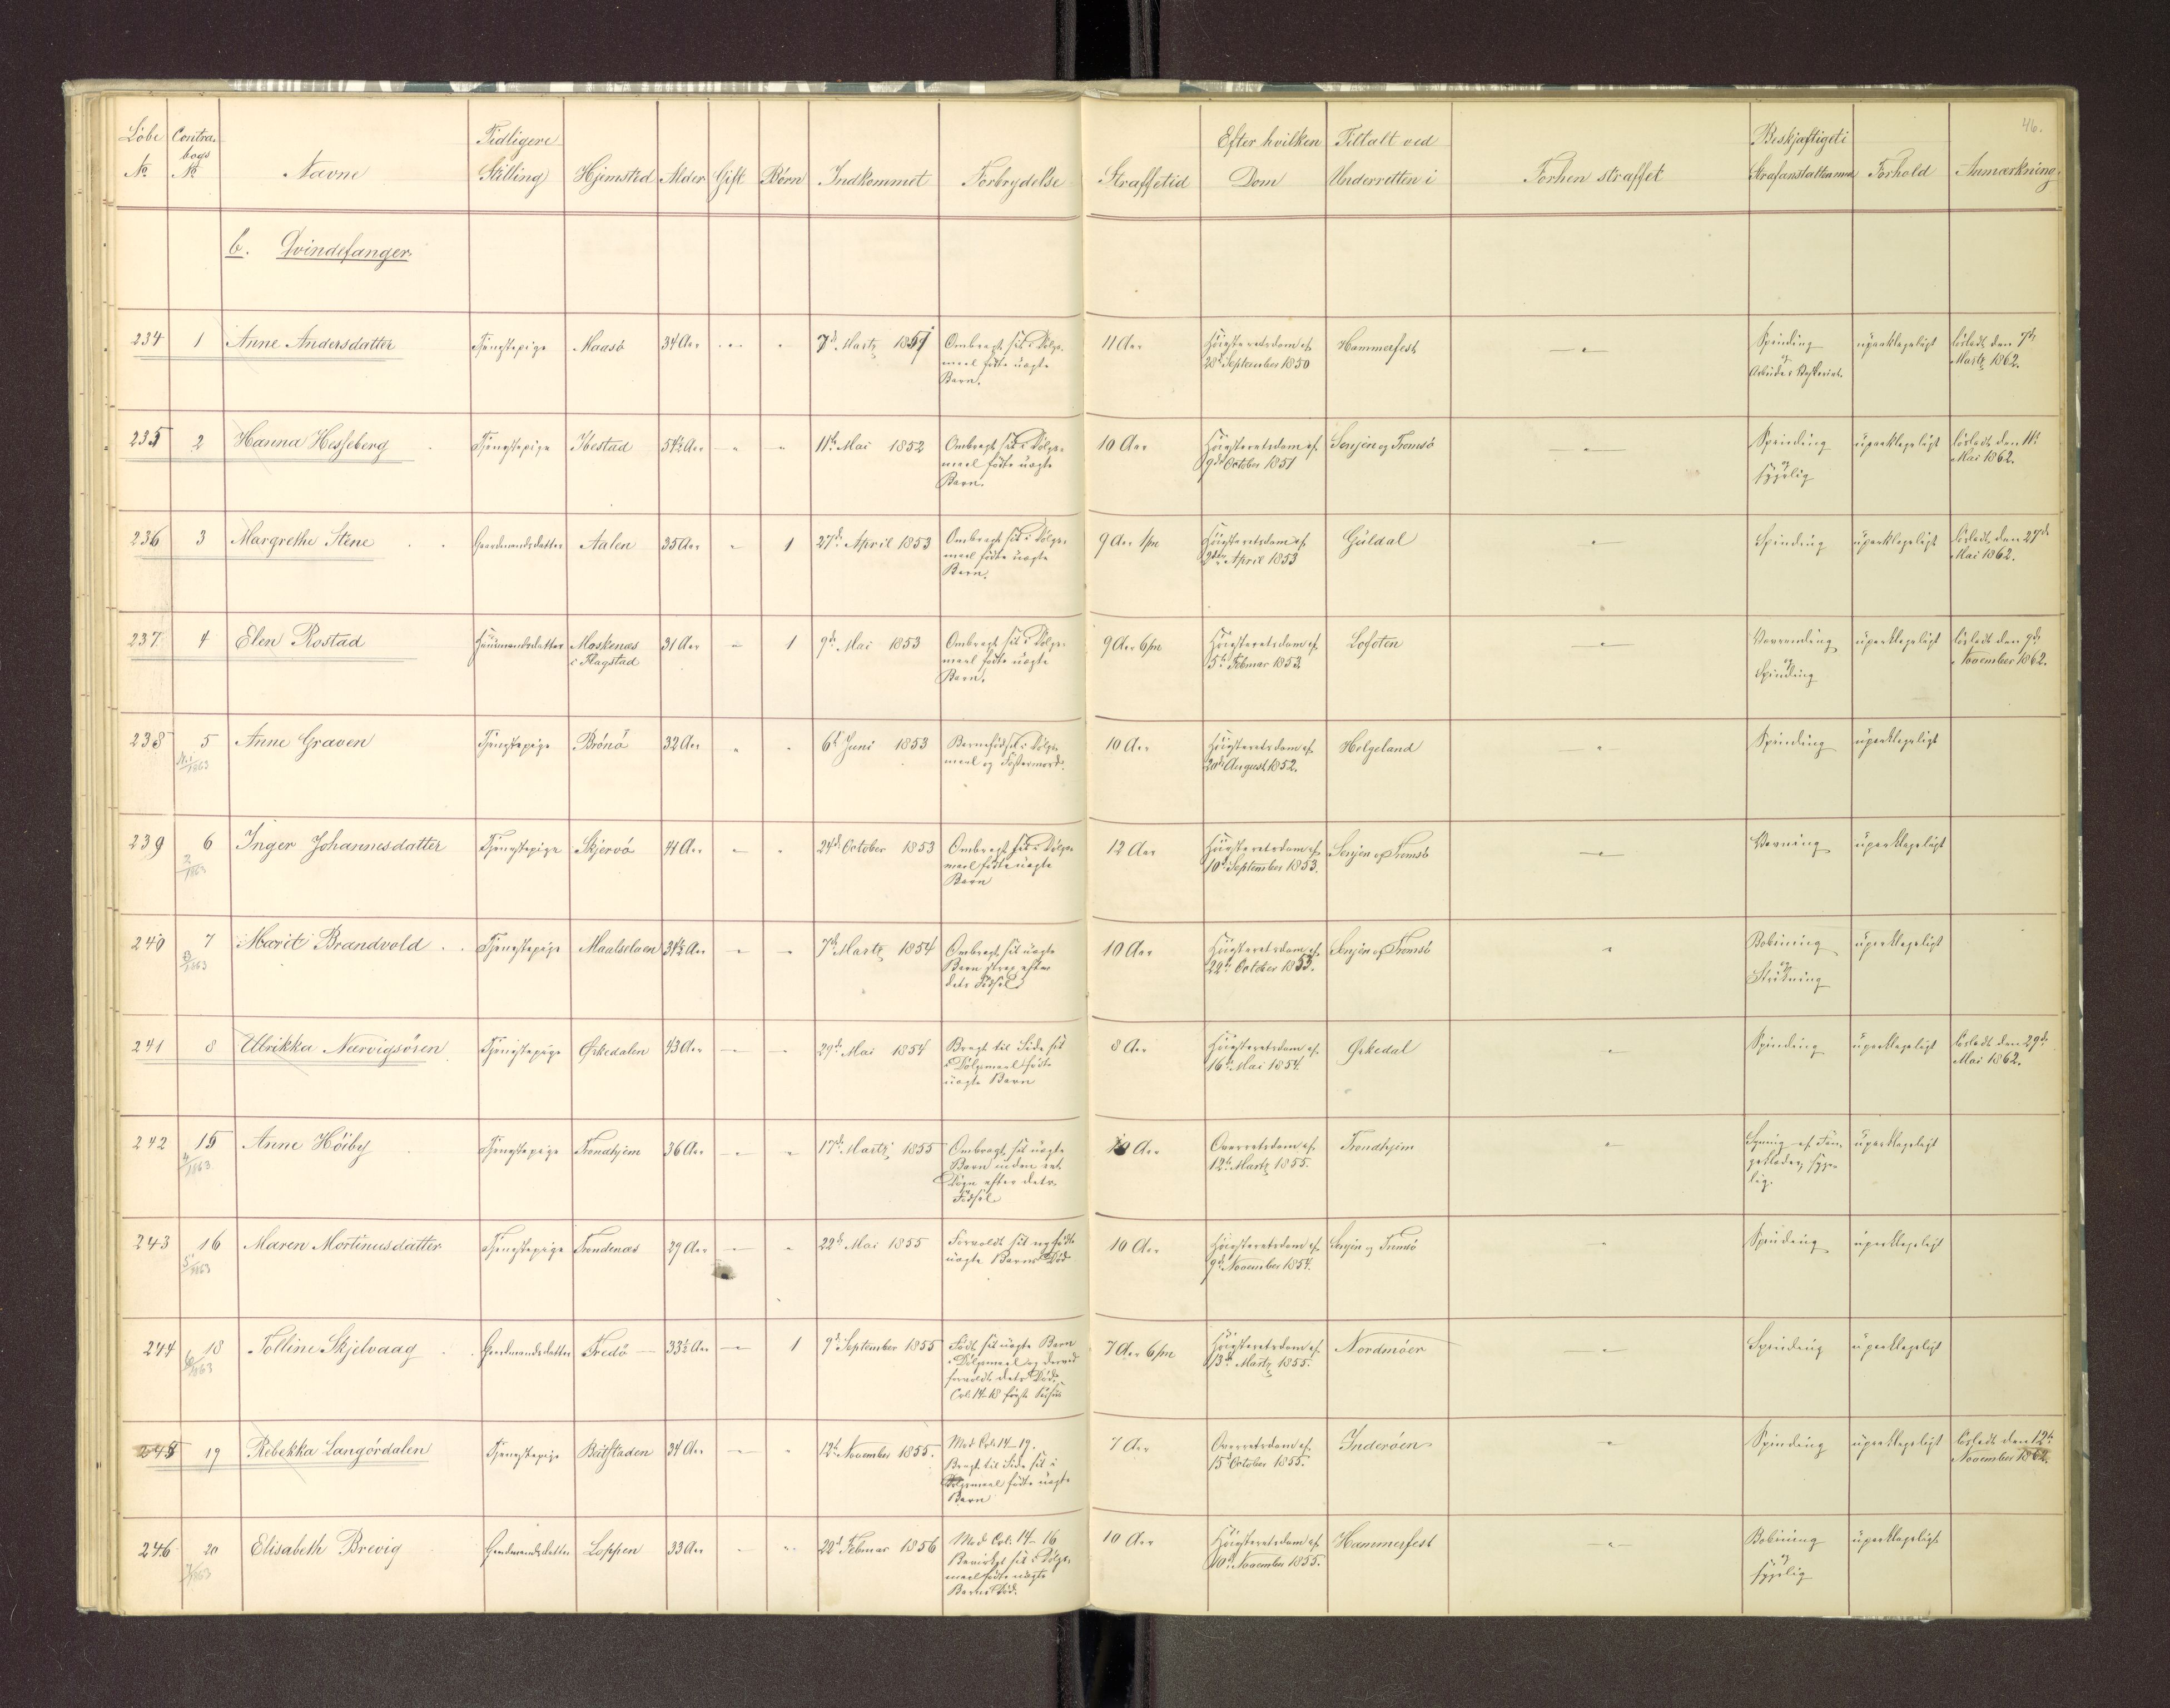 46.
Löbe No
Contra-bogs No
Navne
Tidligere Stilling
Hjemsted
Alder
Gift
Börn
Indkommet
Forbrydelse
Straffetid
Efter hvilken Dom
Tiltalt ved Underretten i
Forhen straffet
Beskjæftiget i Strafanstalten med
Forhold
Anmærkning
b. Qvindefanger.
234 1 Anne Andersdatter Tjenestepige Maasö 34 Aar 7de Marts 1851 Ombragt sit i Dölgs-
maal födte uægte
Barn.
11 Aar Höiesteretsdom af
28de September 1850
Hammerfest
Spinding
og
upaaklageligt
lösladt den 7de
Marts 1862.
235 2 Hanna Hesseberg Tjenestepige Ibestad 54½ Aar 11te Mai 1852 Ombragt sit i Dölgs-
maal födte uægte
Barn.
10 Aar Höiesteretsdom af
9de October 1851
Senjen og Tromsö
Spinding
og
sygelig
upaaklageligt
lösladt den 11te
Mai 1862.
236 3 Margrethe Stene Gaardmandsdatter Aalen 35 Aar 1 27de April 1853 Ombragt sit i Dölgs-
maal födte uægte
Barn.
9 Aar 1 m Höiesteretsdom af
2den April 1853
Guldal
Spinding
upaaklageligt
lösladt den 27de
Mai 1862.
237 4 Elen Rostad Huusmandsdatter Moskenæs
i Flagstad
31 Aar 1 9de Mai 1853 Ombragt sit i Dölgs-
maal födte uægte
Barn.
9 Aar 6 m Höiesteretsdom af
5te Februar 1853
Lofoten
og
Spinding
upaaklageligt
lösladt den 9de
November 1862.
238 5 Anne Graven Tjenestepige Brönö 32 Aar 6te Juni 1853 Barnefödsel i Dölgs-
maal og Fostermord.
1863
10 Aar Höiesteretsdom af
20de August 1852.
Helgeland
Spinding
upaaklageligt
239 6 Inger Johannesdatter Tjenestepige Skjervö 41 Aar 24de October 1853 Ombragt sit i Dölgs-
maal födte uægte
Barn
2/1863
12 Aar Höiesteretsdom af
10de September 1853.
Senjen og Tromsö
Vævning
upaaklageligt
240 7 Marit Brandvold Tjenestepige Maalselven 34½ Aar 7de Marts 1854 Ombragt sit uægte
Barn strax efter
dets Födsel
3/1863
10 Aar Höiesteretsdom af
22de October 1853.
Senjen og Tromsö
Bobining
og
Strikning
upaaklageligt
241 8 Ulrikka Nærvigsören Tjenestepige Ørkedalen 43 Aar 29de Mai 1854 Bragt til Side sit
i Dölgsmaal födte
uægte Barn
8 Aar Höiesteretsdom af
16de Mai 1854.
Ørkedal
Spinding
upaaklageligt
lösladt den 29de
Mai 1862.
242 15 Anne Höiby Tjenestepige Trondhjem 36 Aar 17de Marts 1855 Ombragt sit uægte
Barn inden et
Dögn efter dets
Födsel
4/1863
10 Aar Overretsdom af
12te Marts 1855.
Trondhjem
Syning af Fan-
geklæder, syge-
lig.
upaaklageligt
243 16 Maren Martinusdatter Tjenestepige Trondenæs 29 Aar 22de Mai 1855 Forvoldt sit nyfödte
uægte Barns Död
5/1863
10 Aar Höiesteretsdom af
9de November 1854.
Senjen og Tromsö
Spinding
upaaklageligt
244 18 Tolline Skjelvaag Gaardmandsdatter Fredö 33½ Aar 1 9de September 1855 Födt sit uægte Barn
i Dölgsmaal og derved
forvoldt dets Död.
Crl. 14-18
6/1863
7 Aar 6 m Höiesteretsdom af
13de Marts 1855.
Nordmöer
Spinding
upaaklageligt
245 19 Rebekka Langördalen Tjenestepige Beitstaden 34 Aar 12te November 1855. Mod Crl. 14-19.
Bragt til Side sit i
Dölgsmaal födte uægte
Barn
7 Aar Overretsdom af
15de October 1855.
Inderöen
Spinding
upaaklageligt
lösladt den 12te
November 1862.
246 20 Elisabeth Brevig Gaardmandsdatter Loppen 33 Aar 22de Februar 1856 Mod Crl. 14-16
Bevirket sit i Dölgs-
maal födte uægte
Barns Död.
7/1863
10 Aar Höiesteretsdom af
10de November 1855.
Hammerfest
Bobining
og
sygelig
upaaklageligt.